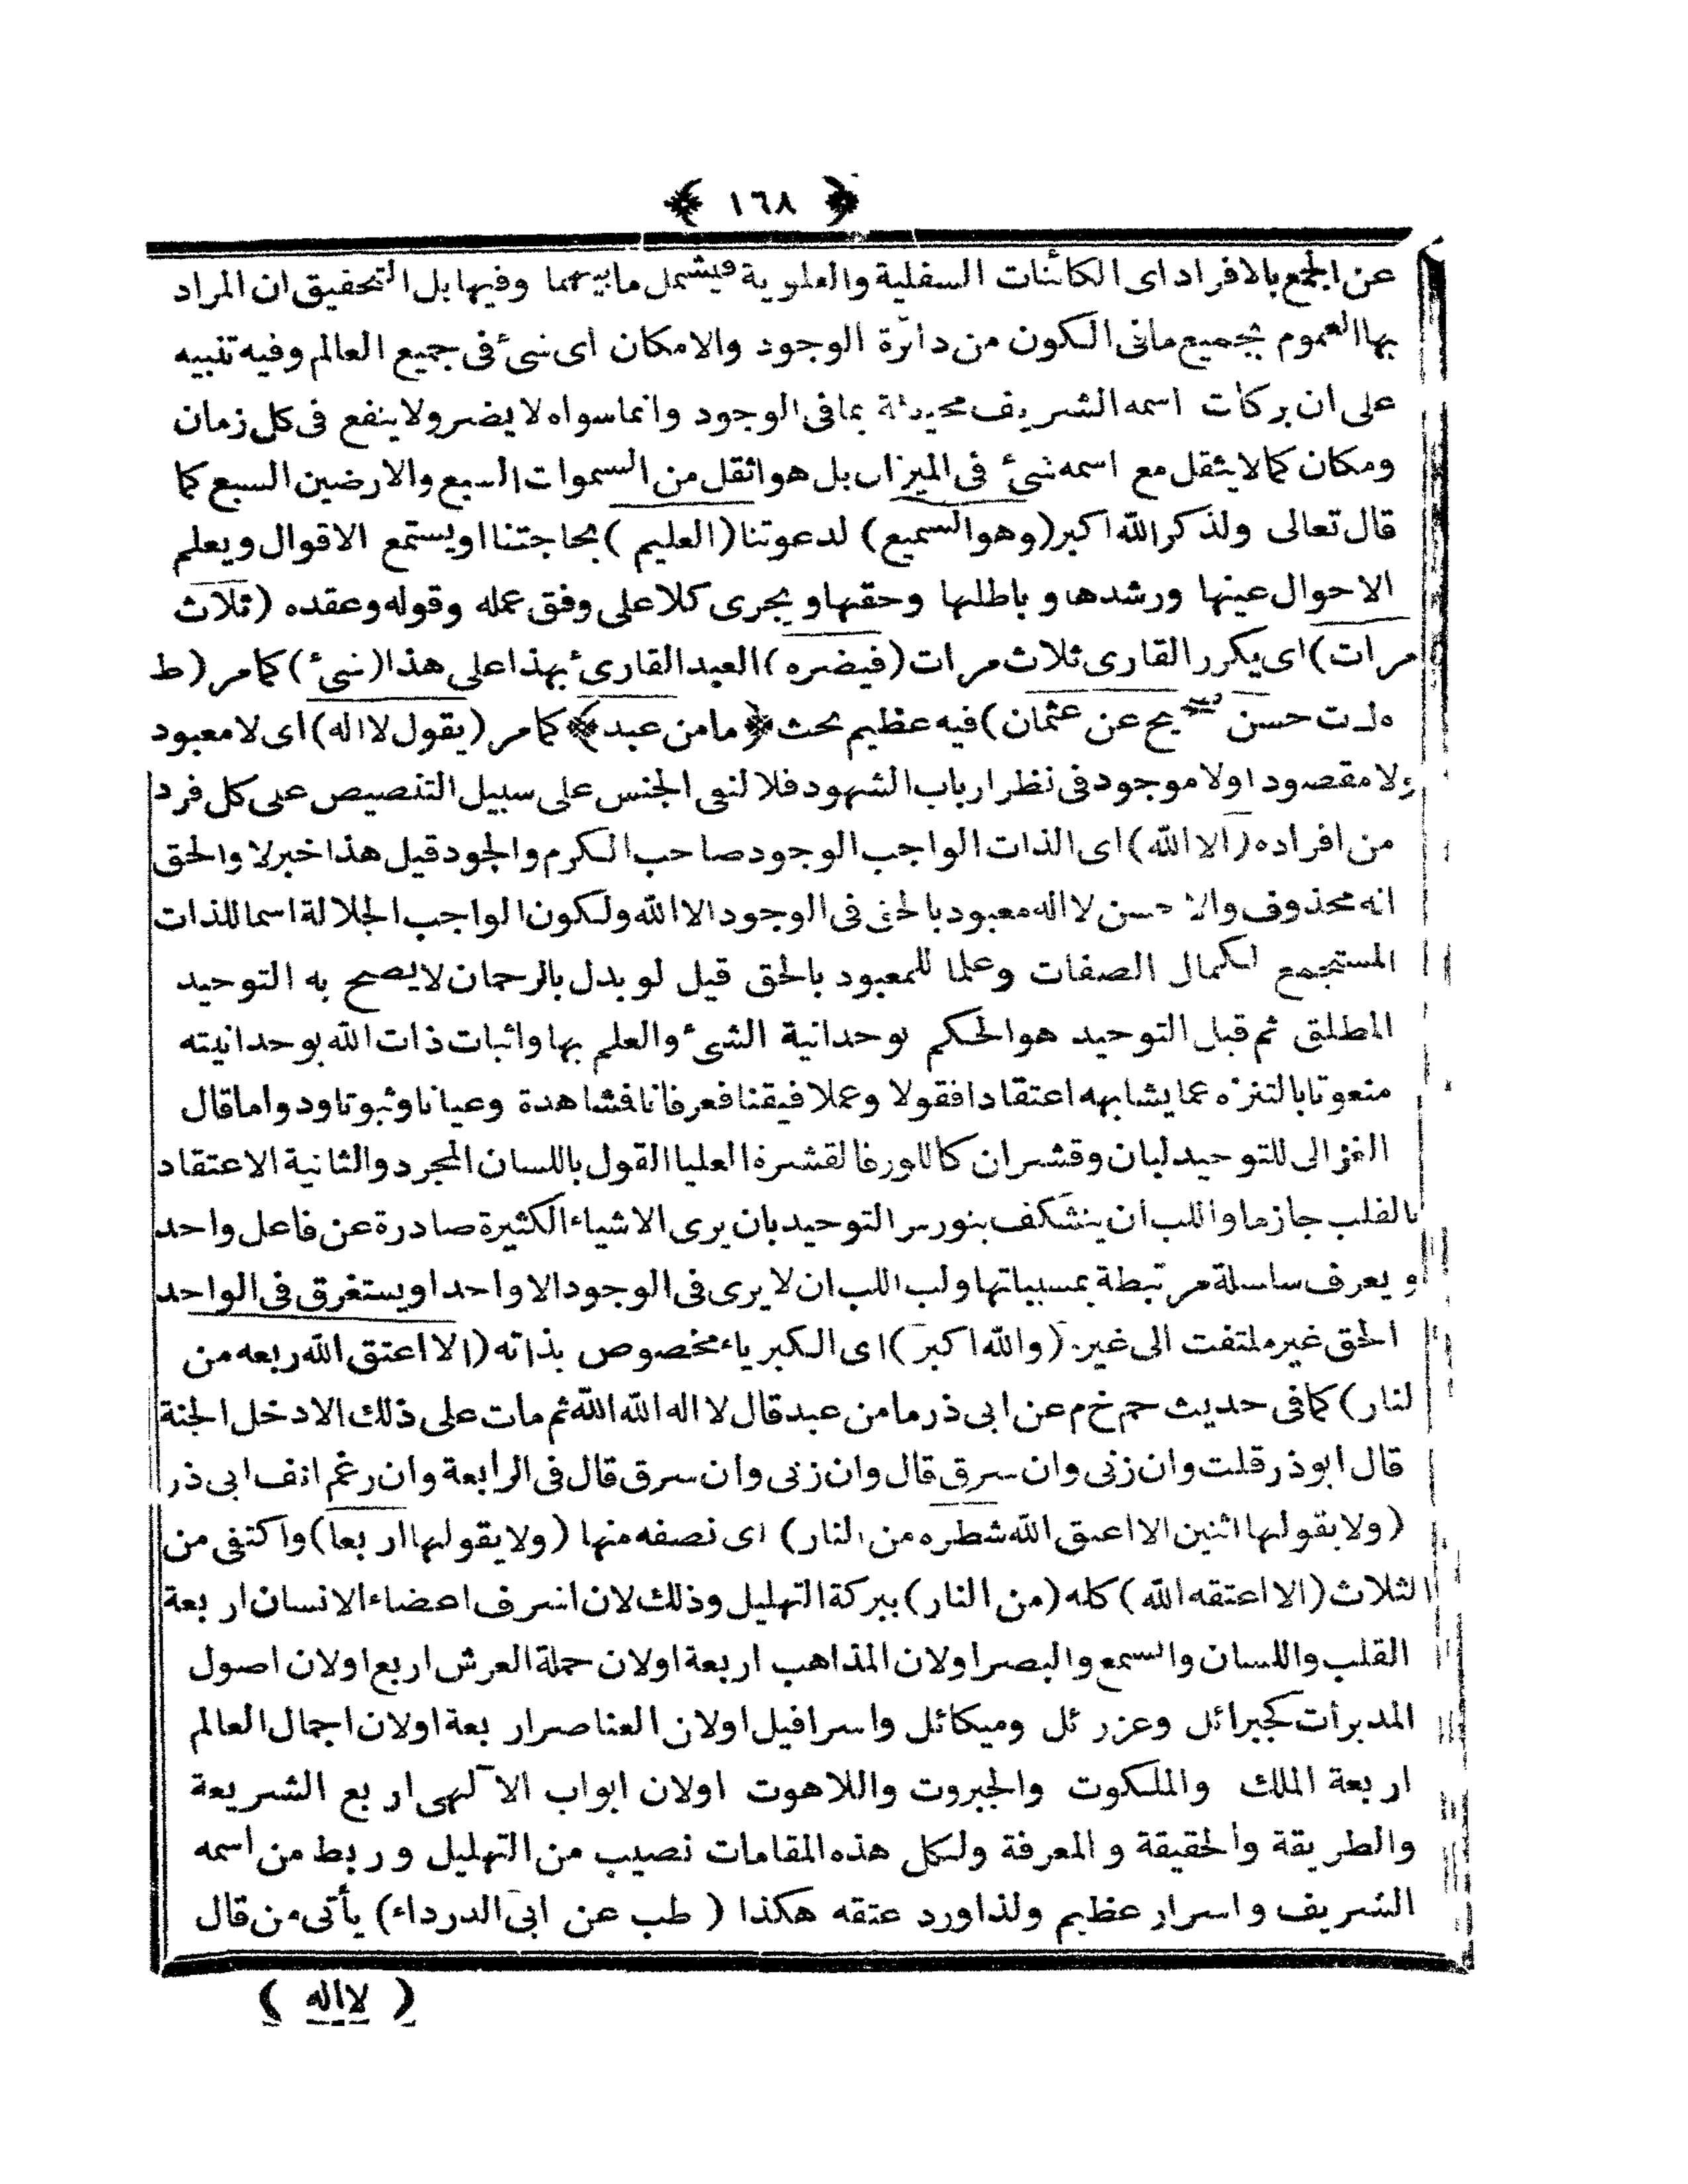 ﴿ ١٦٨ ﴾
عن الجمع بالافراد اى الكائنات السفلية والعلوية فيشمل ما بينهما وفيها بل التحقيق ان المراد
بها العموم بجميع مافى الكون من دائرة الوجود والامكان اى شئ فى جميع العالم وفيه تنبيه
على ان بركات اسمه الشريف محيطة بما فى الوجود وانما سواه لايضر ولاينفع فى كل زمان
ومكان كما لايثقل مع اسمه شئ فى الميزان بل هو اثقل من السموات السبع والارضين السبع كما
قال تعالى ولذكر الله اكبر (وهو السميع) لدعوتنا (العليم) بحاجتنا او يستمع الاقوال ويعلم
الاحوال عينها ورشدها وباطلها وحقها ويجرى كلا على وفق عمله وقوله وعقده (ثلاث
مرات) اى يكرر القارى ثلاث مرات (فيضره) العبد القارئ بهذا على هذا (شئ) كما مر (ط
ه ت حسن صحيح عن عثمان) فيه عظيم بحث ﴿ما من عبد﴾ كما مر (يقول لا اله) اى لا معبود
ولا مقصود او لا موجود فى نظر ارباب الشهود فلا لنفى الجنس على سبيل التنصيص على كل فرد
من افراده (الا الله) اى الذات الواجب الوجود صاحب الكرم والجود قيل هذا خبر لا والحق
انه محذوف والاحسن لا اله معبود بالحق فى الوجود الا الله ولكون الواجب الجلالة اسما للذات
المستجمع لكمال الصفات وعلما للمعبود بالحق قيل لو بدل بالرحمان لايصح به التوحيد
المطلق ثم قبل التوحيد هو الحكم بوحدانية الشئ والعلم بها واثبات ذات الله بوحدانيته
منعوتا بالتنزه عما يشابهه اعتقادا فقولا وعملا فيقنا فعرفانا فشاهدة وعيانا وثبوتا ودواما قال
الغزالى للتوحيد لبان وقشران كاللوز فالقشرة العليا القول باللسان المجرد والثانية الاعتقاد
بالقلب جازما واللب ان ينشكف بنور سر التوحيد بان يرى الاشياء الكثيرة صادرة عن فاعل واحد
ويعرف ساسلة مرتبطة بمسبباتها ولب اللب ان لا يرى فى الوجود الا واحدا ويستغرق فى الواحد
الحق غير ملتفت الى غيره (والله اكبر) اى الكبرياء مخصوص بذاته (الا اعتق الله ربعه من
لنار) كما فى حديث حم خ م عن ابى ذر ما من عبد قال لا اله الله الله ثم مات على ذلك الا دخل الجنة
قال ابوذر قلت وان زنى وان سرق قال وان زنى وان سرق قال فى الرابعة وان رغم انف ابى ذر
(ولا يقولها اثنين الا اعتق الله شطره من النار) اى نصفه منها (ولا يقولها اربعا) واكتفى من
الثلاث (الا اعتقه الله) كله (من النار) ببركة التهليل وذلك لان اشرف اعضاء الانسان اربعة
القلب واللسان والسمع والبصر اولان المذاهب اربعة اولان حملة العرش اربع اولان اصول
المدبرات كجبرائل وعزرئل وميكائل واسرافيل اولان العناصر اربعة اولان اجمال العالم
اربعة الملك والملكوت والجبروت واللاهوت اولان ابواب الالٓهى اربع الشريعة
والطريقة والحقيقة والمعرفة ولكل هذه المقامات نصيب من التهليل وربط من اسمه
الشريف واسرار عظيم ولذا ورد عتقه هكذا (طب عن ابى الدرداء) يأتى من قال
( لا اله )